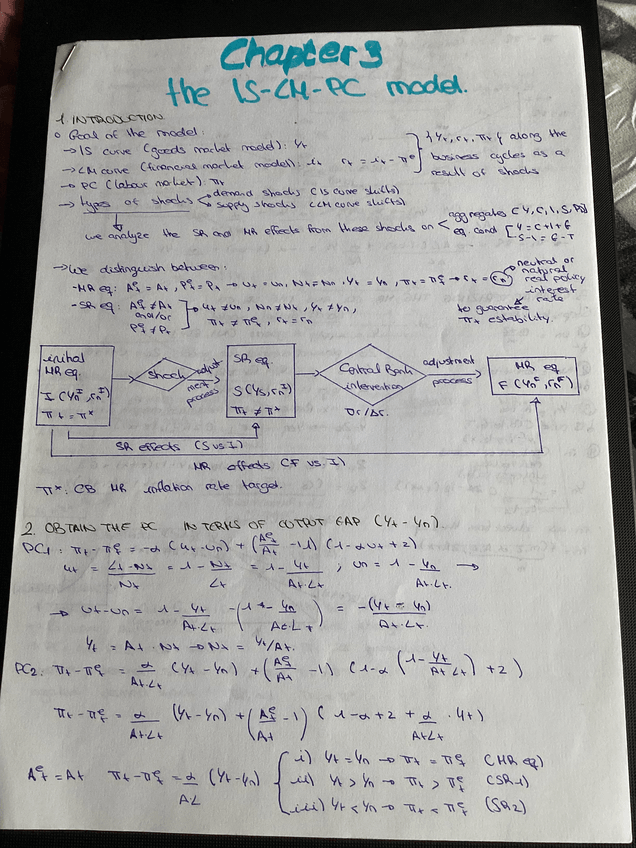 Chapter 3
the IS-LM-PC model.
1 INTRODUCTION
o Goal of the model:
→ IS curve (goods market model): Yt
→ LM curve (financial market model): it rt = it - πe
→ PC (labour market): πt
{Yt, rt, πt} along the
business cycles as a
result of shocks
→ types of shocks
demand shocks (IS curve shifts)
supply shocks (LM curve shifts)
we analyze the SR and MR effects from these shocks on
aggregates (Y, C, I, S, Pb)
eq. cond
Y = C+I+G
S-I = G-T
→ we distinguish between:
- MR eq: Aet = At, Pet = Pt → ut = un, Nt = Nn, Yt = Yn, πt = πet → rt = rn
neutral or
natural
real policy
interest
rate
to guarantee
πt estability.
- SR eq: Aet ≠ At
and/or
Pet ≠ Pt
→ ut ≠ un, Nt ≠ Nn, Yt ≠ Yn,
πt ≠ πet, rt = rn
initial
MR eq.
I (YnI, rnI)
πt = π*
shock
adjust
ment
process
SR eq.
S (YS, rnI)
πt ≠ π*
Central Bank
intervention
∇r/Δr.
adjustment
process
MR eq
F (YnF, rnF)
SR effects (S vs I)
MR effects (F vs. I)
π*: CB MR inflation rate target.
2. OBTAIN THE PC IN TERMS OF OUTPUT GAP (Yt - Yn)
PC1: πt - πet = -α (ut - un) + (Aet/At - 1) (1 - αut + z)
ut = Lt - Nt/Nt = 1 - Nt/Lt = 1 - Yt/At·Lt ; un = 1 - Yn/At·Lt. →
→ ut - un = 1 - Yt/At·Lt - (1 - Yn/At·Lt) = -(Yt - Yn)/At·Lt.
Yt = At · Nt → Nt = Yt/At.
PC2: πt - πet = α/At·Lt (Yt - Yn) + (Aet/At - 1) (1 - α (1 - Yt/At·Lt) + z)
πt - πet = α/At·Lt (Yt - Yn) + (Aet/At - 1) (1 - α + z + α/At·Lt · Yt)
Aet = At πt - πet = α/AL (Yt - Yn)
i) Yt = Yn → πt = πet (MR eq)
ii) Yt > Yn → πt > πet (SR1)
iii) Yt < Yn → πt < πet (SR2)